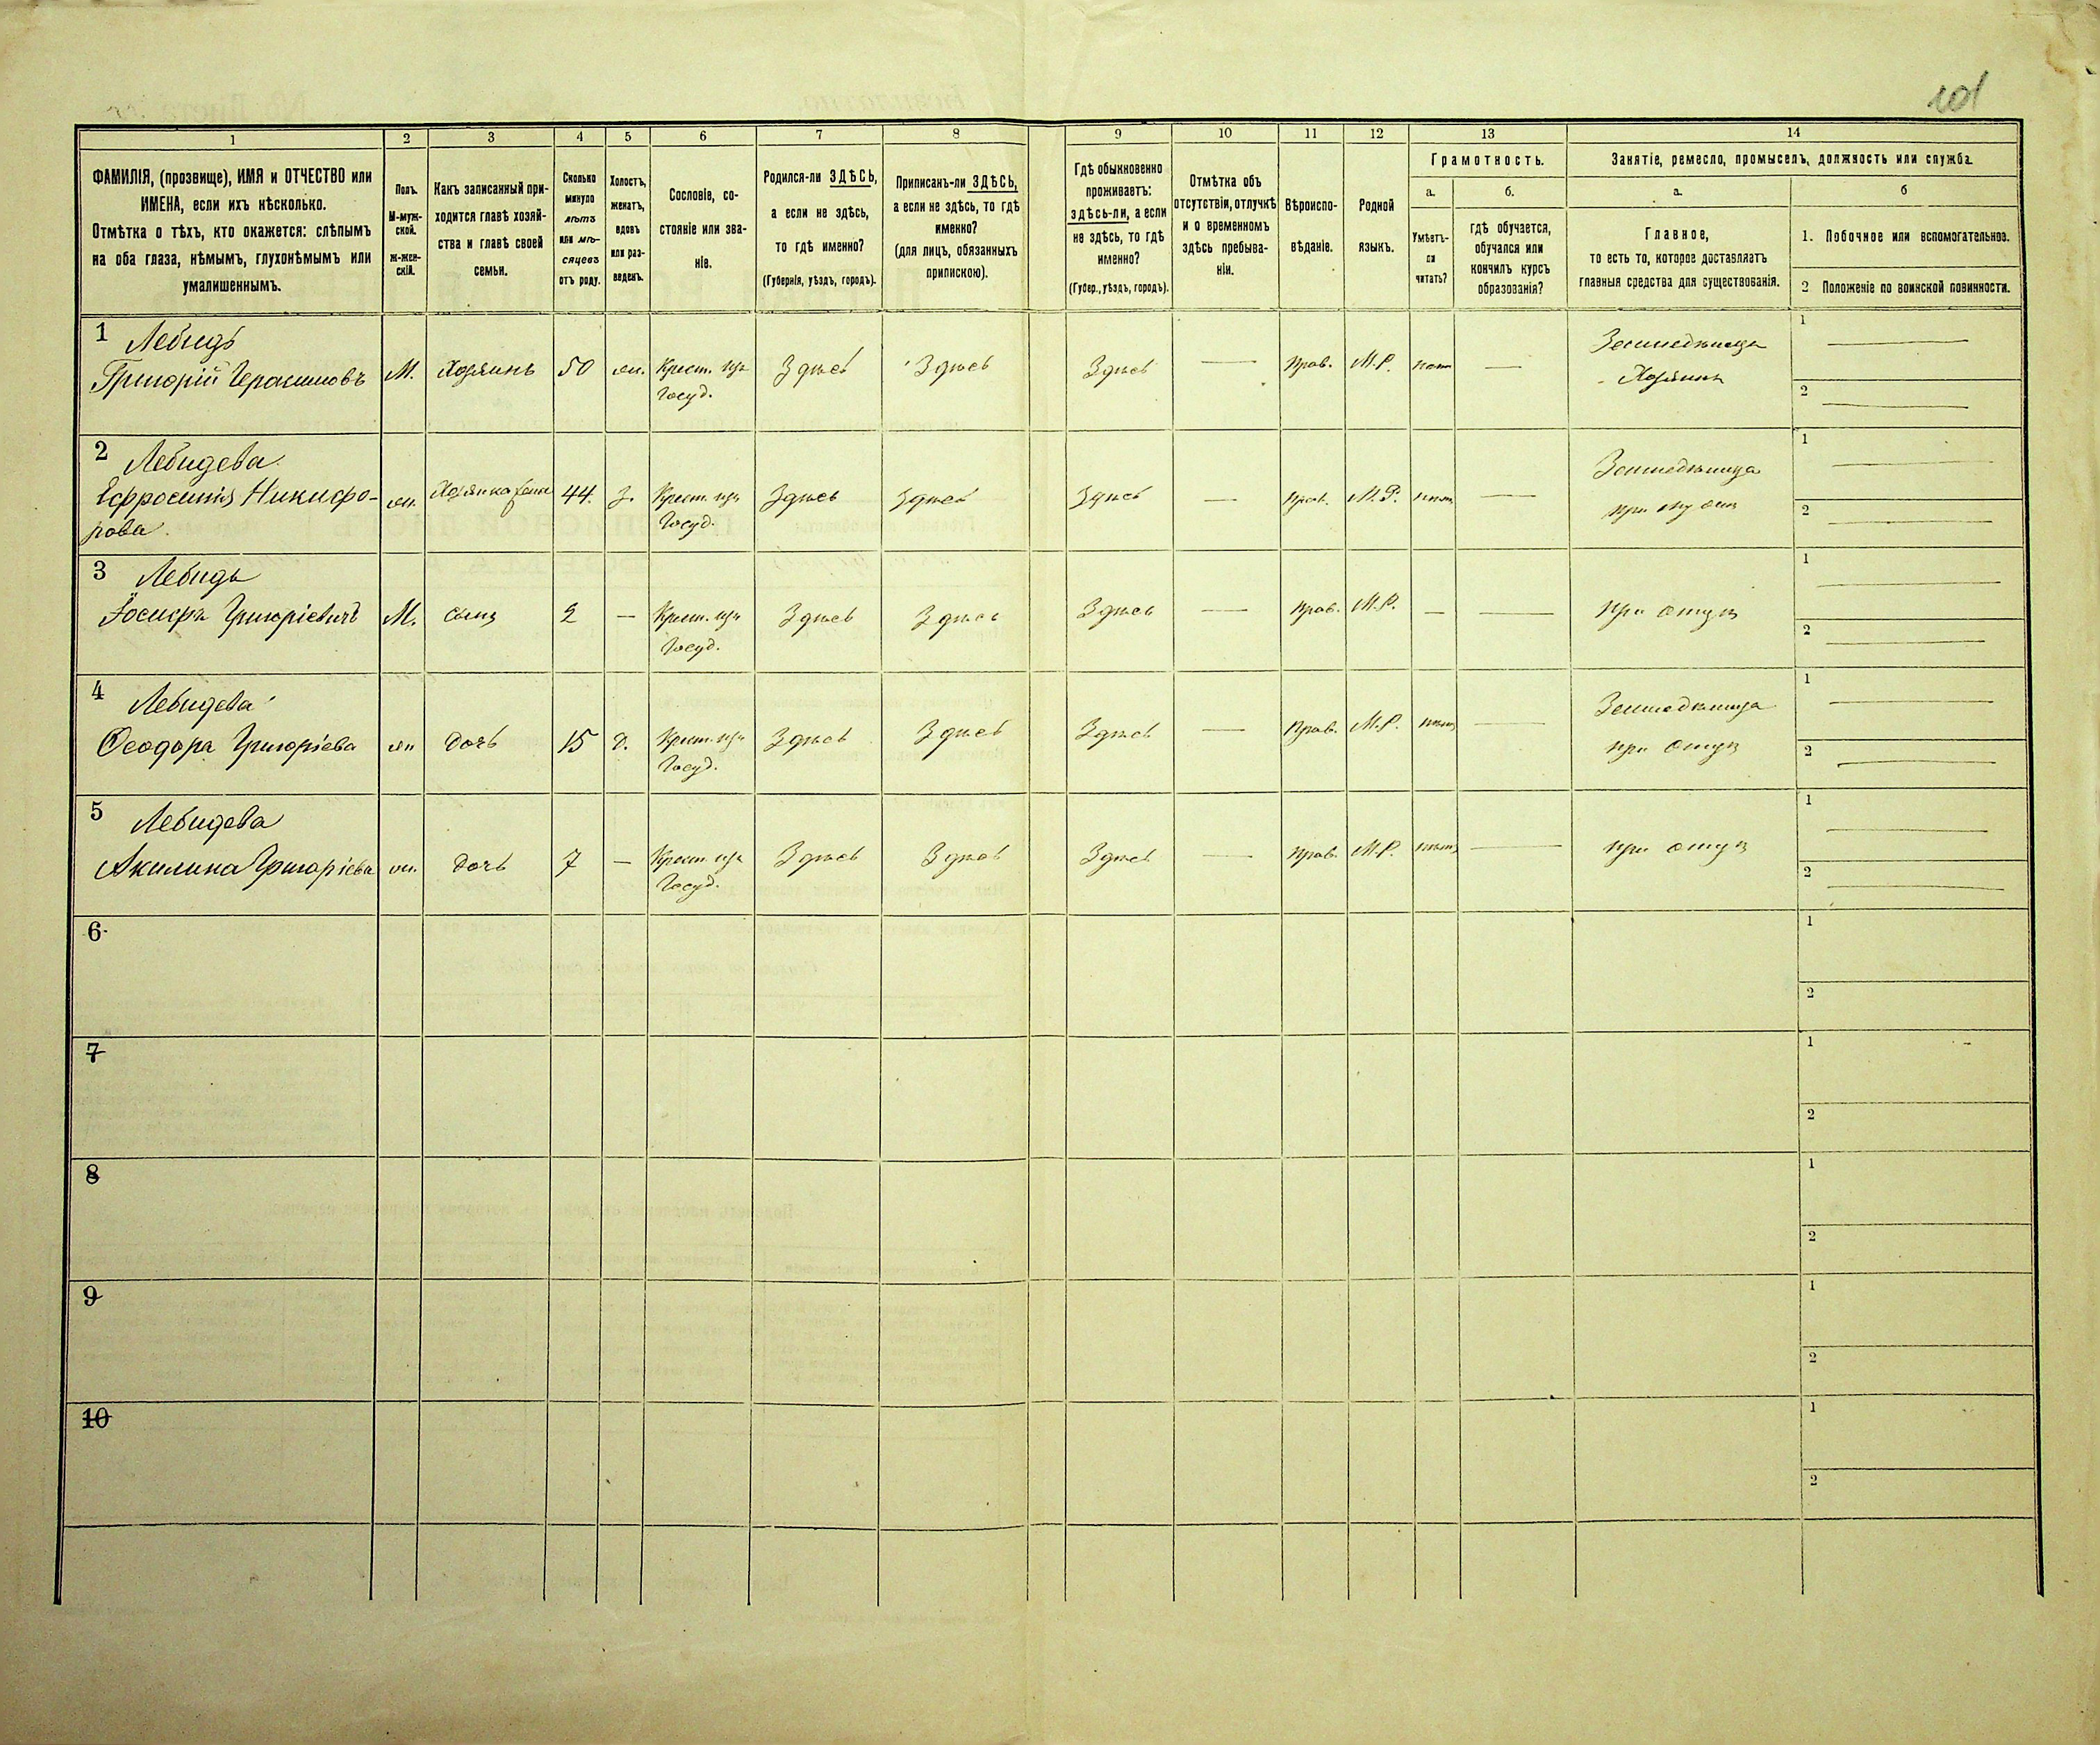 101
1 2 3 4 5 6 7 8 9 10 11 12 13 14
ФАМИЛІЯ, (прозвище), ИМЯ и ОТЧЕСТВО или
ИМЕНА, если ихъ нѣсколько.
Отмѣтка о тѣхъ, кто окажется: слѣпымъ
на оба глаза, нѣмымъ, глухонѣмымъ или
умалишеннымъ.
Полъ.
М-муж-
ской.
Ж-жен-
скій.
Какъ записанный при-
ходится главѣ хозяй-
ства и главѣ своей
семьи.
Сколько
минуло
лѣтъ
или мѣ-
сяцевъ
отъ роду.
Холостъ,
женатъ,
вдовъ
или раз-
веденъ.
Сословіе, со-
стояніе или зва-
ніе.
Родился-ли ЗДѢСЬ,
а если не здѣсь,
то гдѣ именно?
(Губернія, уѣздъ, городъ).
Приписанъ-ли ЗДѢСЬ,
а если не здѣсь, то гдѣ
именно?
(для лицъ, обязанныхъ
припискою).
Гдѣ обыкновенно
проживаетъ:
здѣсь-ли, а если
не здѣсь, то гдѣ
именно?
(Губер., уѣздъ, городъ).
Отмѣтка объ
отсутствіи, отлучкѣ
и о временномъ
здѣсь пребыва-
ніи.
Вѣроиспо-
вѣданіе.
Родной
языкъ.
Грамотность.
а. б.
Умѣетъ-
ли
читать?
гдѣ обучается,
обучался или
кончилъ курсъ
образованія?
Занятіе, ремесло, промыселъ, должность или служба.
а. б
Главное,
то есть то, которое доставляетъ
главныя средства для существованія.
1. Побочное или вспомогательное.
2 Положеніе по воинской повинности.
1 Лебидь
Григорій Герасимовъ М. Хозяинъ 50 ж. Крест. изъ Здѣсь Здѣсь Здѣсь — Прав. М.Р. нѣтъ —
Госуд.
Земледѣлецъ
Хозяинъ
1 —
2 —
2 Лебидева
Евфросинія Никифо- ж. Хозяйка жена 44. З. Крест. изъ Здѣсь Здѣсь Здѣсь — Прав. М.Р. нѣтъ —
рова Госуд.
Земледѣлица
при мужѣ
1 —
2 —
3 Лебидь
Іосифъ Григоріевичъ М. сынъ 2 — Крест. изъ Здѣсь Здѣсь Здѣсь — Прав. М.Р. — — при отцѣ
Госуд.
1 —
2 —
4 Лебидева
Ѳеодора Григоріева ж дочь 15 д. Крест. изъ Здѣсь Здѣсь Здѣсь — Прав. М.Р. нѣтъ —
Госуд.
Земледѣлица
при отцѣ
1 —
2 —
5 Лебидева
Акилина Григоріева ж. дочь 7 — Крест. изъ Здѣсь Здѣсь Здѣсь — Прав. М.Р. нѣтъ — при отцѣ
Госуд.
1 —
2 —
6
1
2
7
1
2
8
1
2
9
1
2
10
1
2